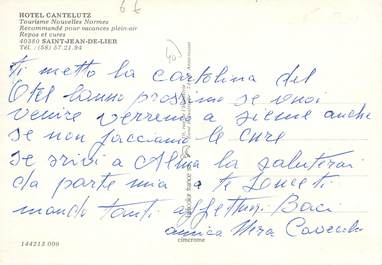 HOTEL CANTELUTZ
Tourisme Nouvelles Normes
Recommandé pour vacances plein-air
Repos et cures
40380 SAINT-JEAN-DE-LIER
Tél. : (58) 57.21.94
6 £
40
ti metto la cartolina del
Otel lanno prossimo se vuoi
venire verremo a sieme anche
se non facciamo le cure
se scrivi a Alma la saluterai
da parte mia a te
mando tanti affettuosi Baci
amica Mira
144213 000
cimcrome